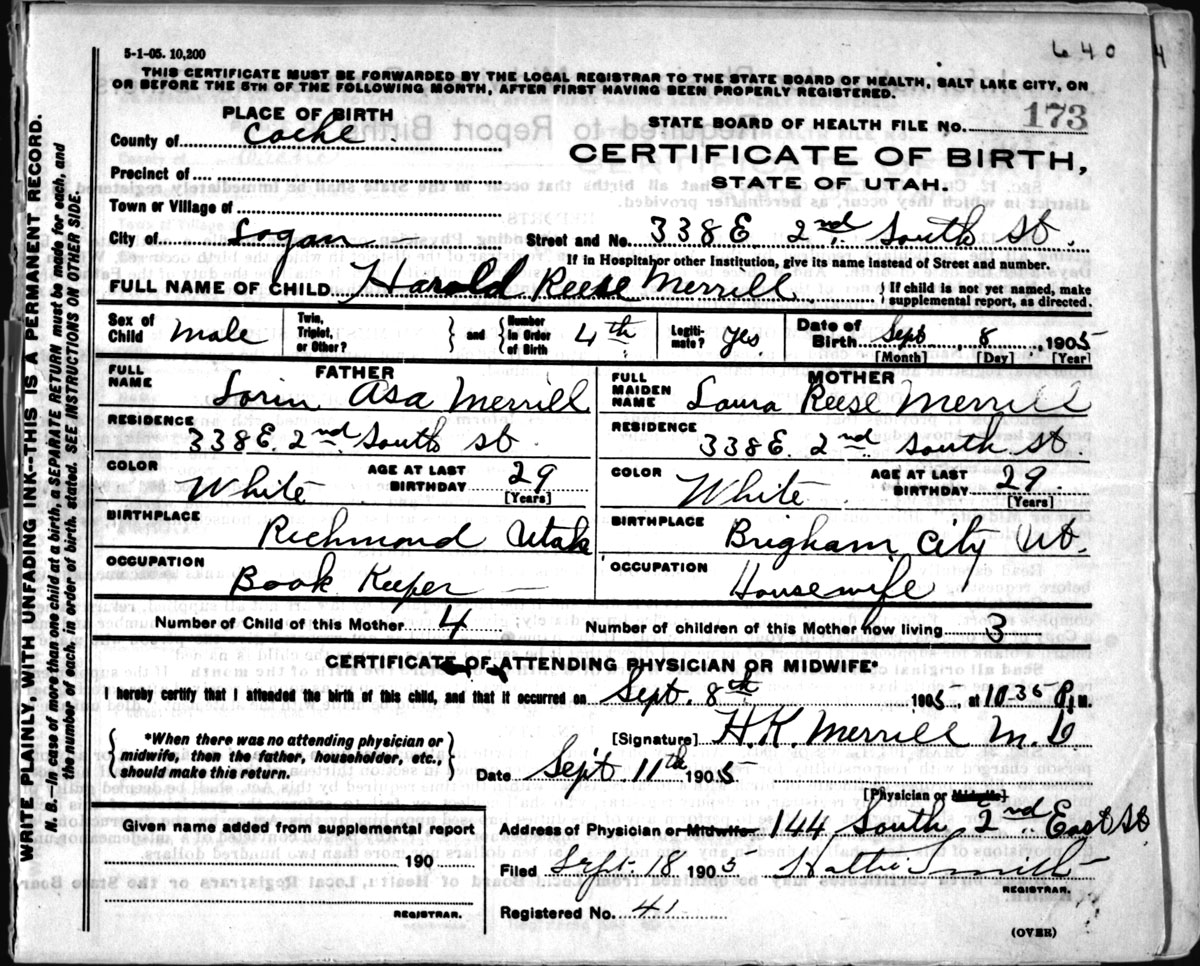 5-1-05. 10,200
640 4
THIS CERTIFICATE MUST BE FORWARDED BY THE LOCAL REGISTRAR TO THE STATE BOARD OF HEALTH, SALT LAKE CITY, ON
OR BEFORE THE 5TH OF THE FOLLOWING MONTH, AFTER FIRST HAVING BEEN PROPERLY REGISTERED.
PLACE OF BIRTH
STATE BOARD OF HEALTH FILE No. 173
County of Cache.
CERTIFICATE OF BIRTH,
Precinct of
STATE OF UTAH.
Town or Village of
City of Logan Street and No. 338 E 2nd. South St.
If in Hospital or other Institution, give its name instead of Street and number.
FULL NAME OF CHILD Harold Reese Merrill { If child is not yet named, make supplemental report, as directed.
Sex of Child Male Twin, Triplet, or Other? } and { Number in Order of Birth 4th Legiti- mate? Yes. Date of Birth Sept 8 1905
[Month] [Day] [Year]
FATHER MOTHER
FULL NAME Lorin Asa Merrill FULL MAIDEN NAME Laura Reese Merrill
RESIDENCE 338 E. 2nd South St RESIDENCE 338 E. 2nd. South St.
COLOR White AGE AT LAST BIRTHDAY 29 [Years] COLOR White AGE AT LAST BIRTHDAY 29. [Years]
BIRTHPLACE Richmond Utah BIRTHPLACE Brigham City Ut.
OCCUPATION Book Keeper OCCUPATION Housewife
Number of Child of this Mother 4 Number of children of this Mother now living 3
CERTIFICATE OF ATTENDING PHYSICIAN OR MIDWIFE*
I hereby certify that I attended the birth of this child, and that it occurred on Sept. 8th 1905, at 10.35 P. M.
{ *When there was no attending physician or midwife, then the father, householder, etc., should make this return. }
[Signature] H. K. Merrill M. D
Date Sept. 11th 1905
[Physician or Midwife]
Given name added from supplemental report
190
REGISTRAR.
Address of Physician or Midwife 144 South 2nd East St
Filed Sept. 18 1905 Hattie Smith
REGISTRAR.
Registered No. 41
(OVER)
WRITE PLAINLY, WITH UNFADING INK--THIS IS A PERMANENT RECORD.
N. B.--In case of more than one child at a birth, a SEPARATE RETURN must be made for each, and
the number of each, in order of birth, stated. SEE INSTRUCTIONS ON OTHER SIDE.